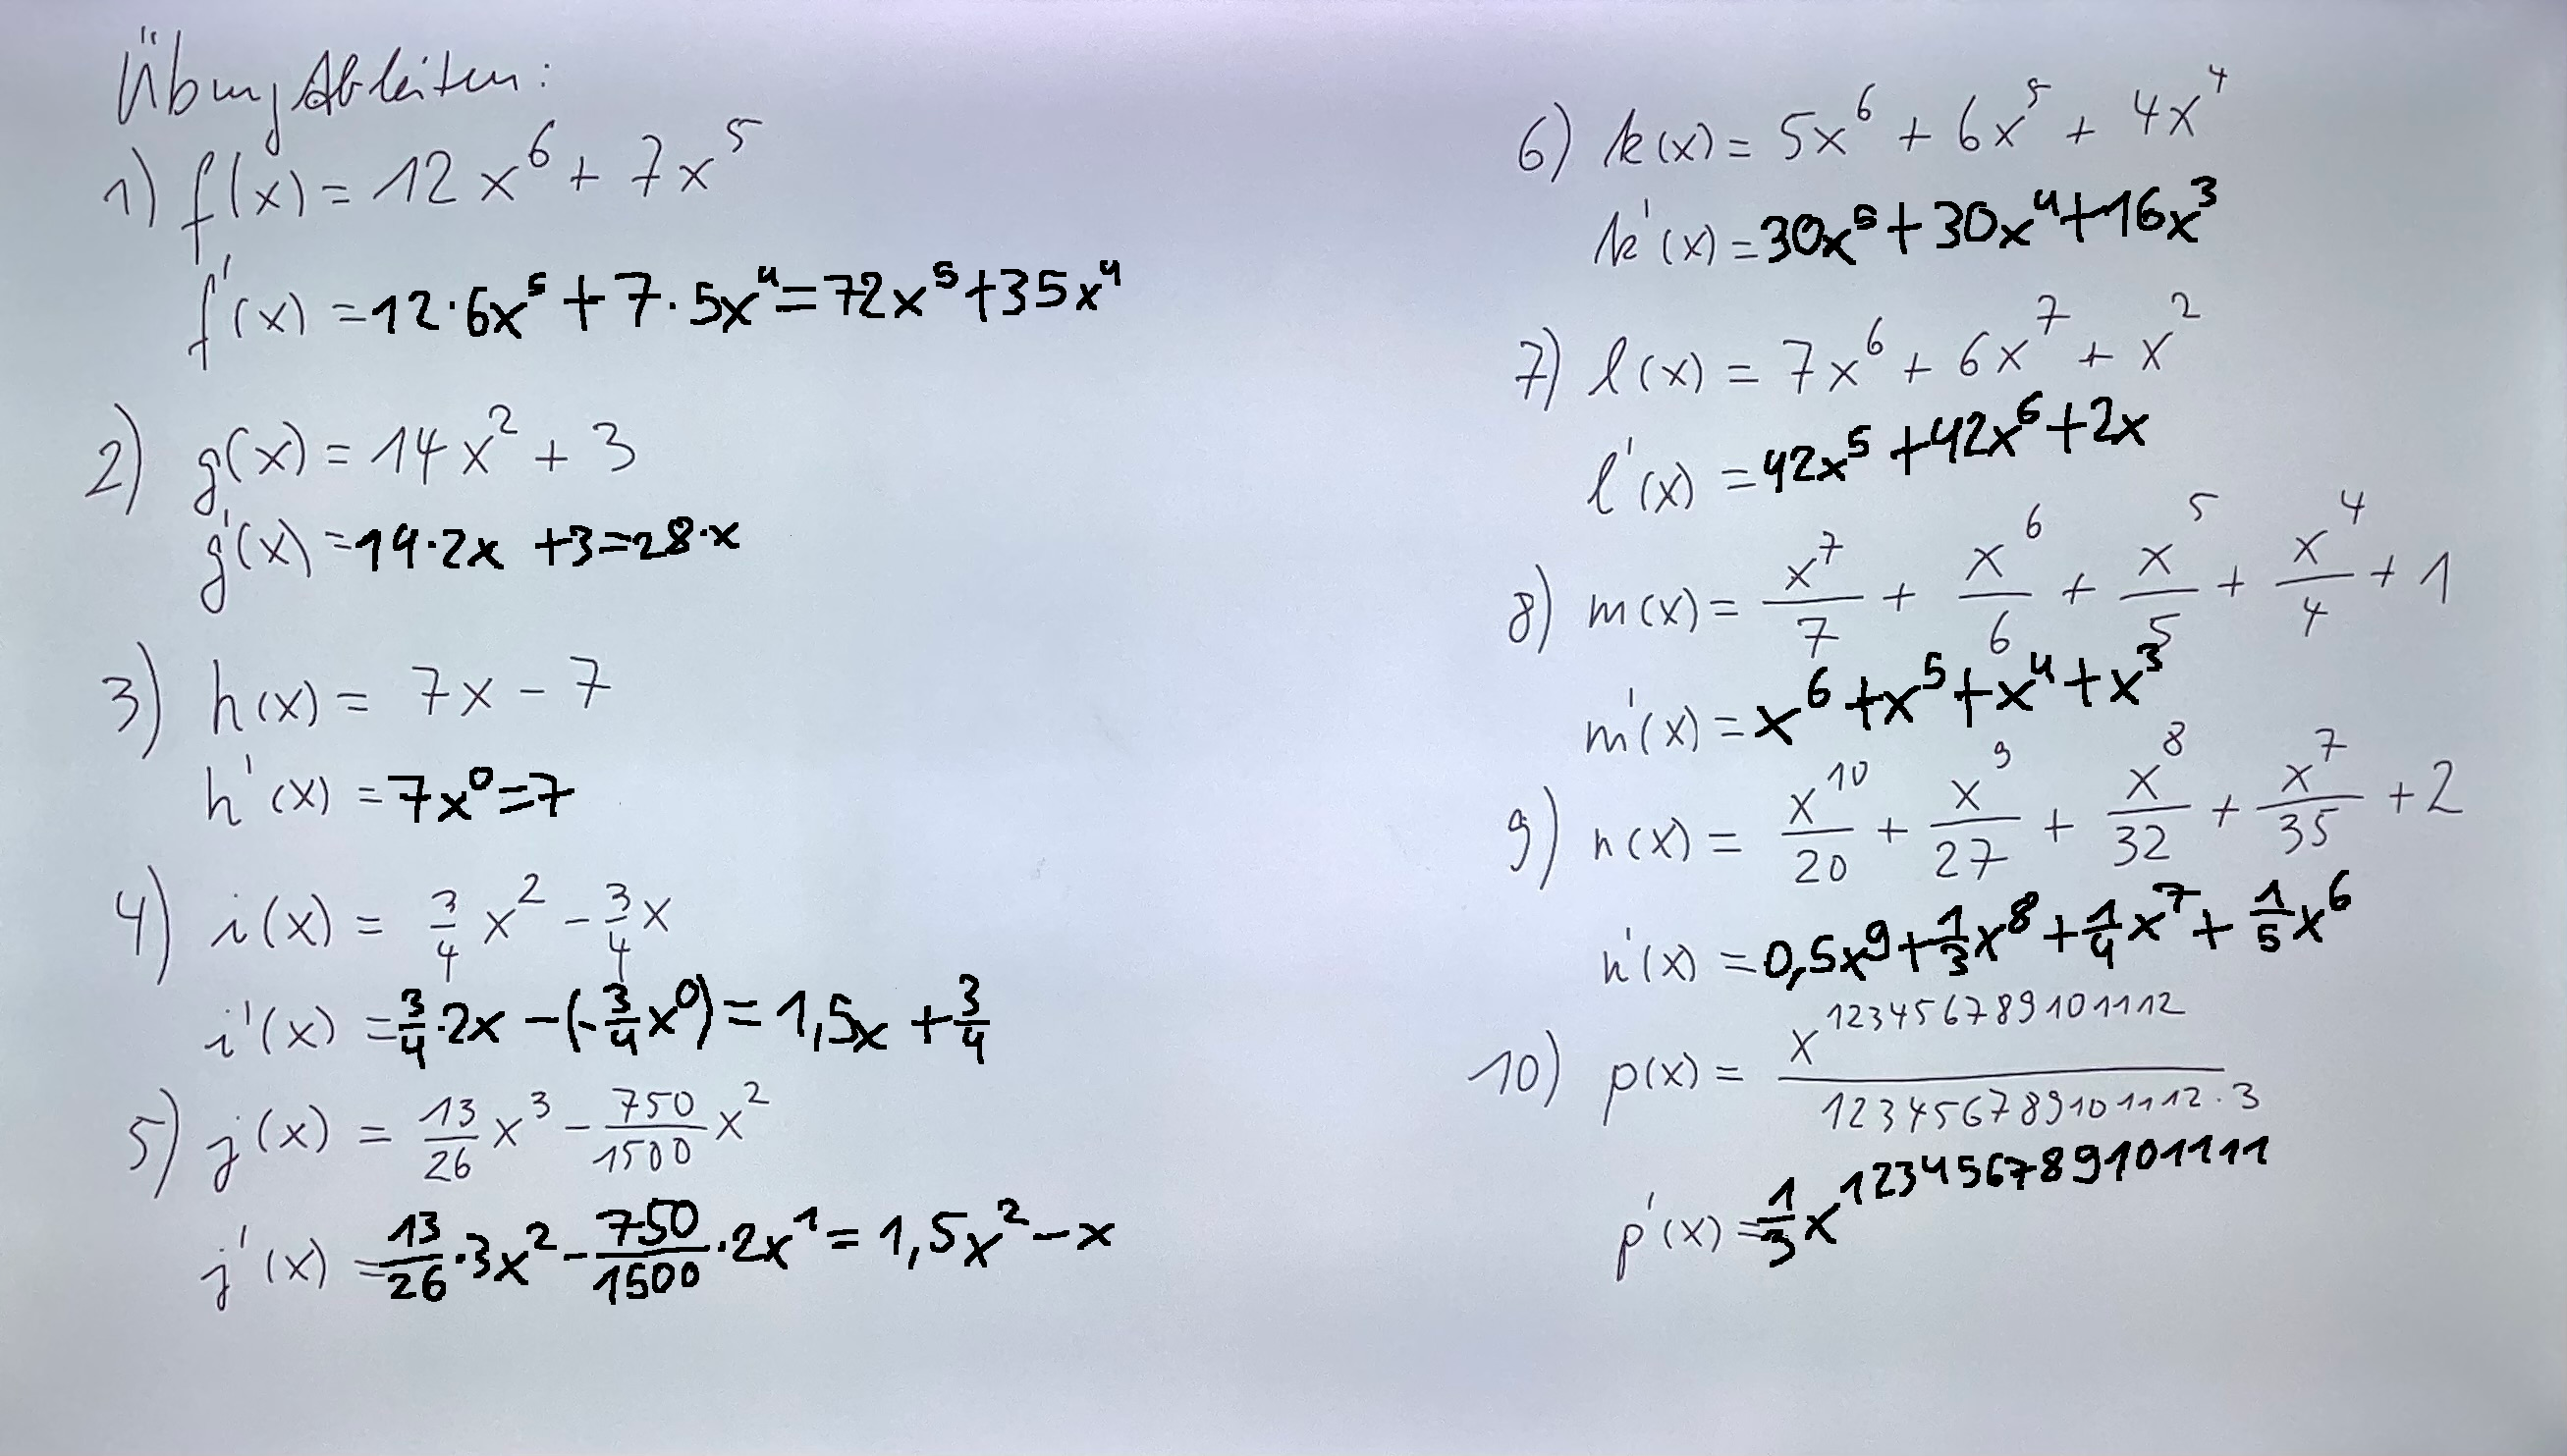 Übung Ableiten:
1) f(x) = 12x⁶ + 7x⁵
f'(x) = 12·6x⁵ + 7·5x⁴ = 72x⁵ + 35x⁴
2) g(x) = 14x² + 3
g'(x) = 14·2x + 3 = 28·x
3) h(x) = 7x - 7
h'(x) = 7x⁰ = 7
4) i(x) = 3/4 x² - 3/4 x
i'(x) = 3/4·2x - (-3/4 x⁰) = 1,5x + 3/4
5) j(x) = 13/26 x³ - 750/1500 x²
j'(x) = 13/26·3x² - 750/1500·2x¹ = 1,5x² - x
6) k(x) = 5x⁶ + 6x⁵ + 4x⁴
k'(x) = 30x⁵ + 30x⁴ + 16x³
7) l(x) = 7x⁶ + 6x⁷ + x²
l'(x) = 42x⁵ + 42x⁶ + 2x
8) m(x) = x⁷/7 + x⁶/6 + x⁵/5 + x⁴/4 + 1
m'(x) = x⁶ + x⁵ + x⁴ + x³
9) n(x) = x¹⁰/20 + x⁹/27 + x⁸/32 + x⁷/35 + 2
n'(x) = 0,5x⁹ + 1/3 x⁸ + 1/4 x⁷ + 1/5 x⁶
10) p(x) = x¹²³⁴⁵⁶⁷⁸⁹¹⁰¹¹¹²/123456789101112·3
p'(x) = 1/3 x¹²³⁴⁵⁶⁷⁸⁹¹⁰¹¹¹¹